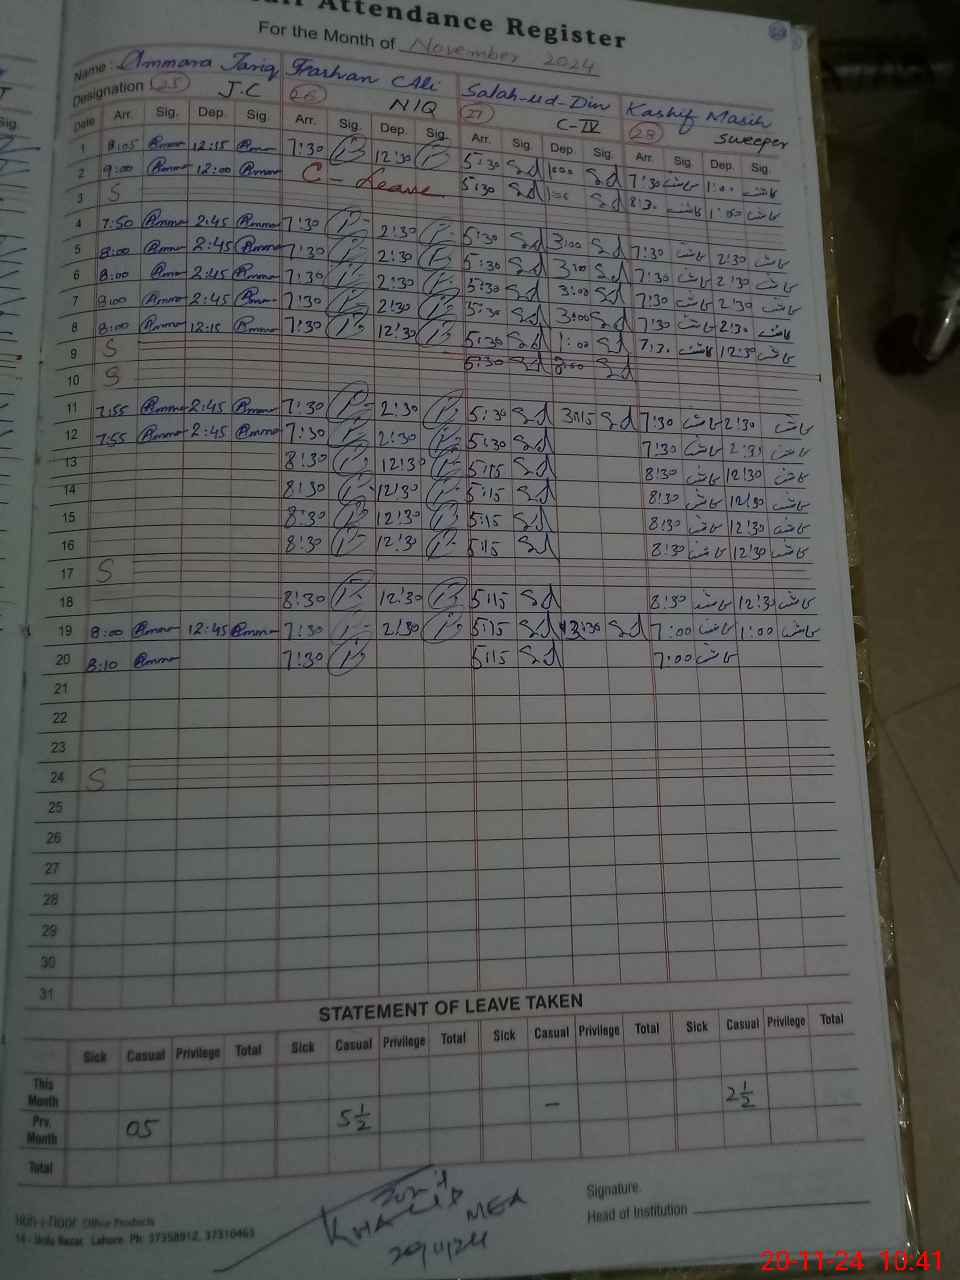 Attendance Register
For the Month of November 2024
Name : Ammara Tariq Frashan Ali Salah-ud-Din Kashif Masih
Designation 25 J.C 26 N/Q 27 C-IV 28 Sweeper
Date Arr. Sig. Dep. Sig. Arr. Sig. Dep. Sig. Arr. Sig. Dep. Sig. Arr. Sig. Dep. Sig.
1 8:05 12:15 7:30 12:30 5:30 Sd Sd 7:30 کاشف 1:00 کاشف
2 9:00 12:00 C - Leave 5:30 Sd Sd 8:30 کاشف 1:00 کاشف
3 S
4 7:50 2:45 7:30 2:30 5:30 Sd 3:00 Sd 7:30 کاشف 2:30 کاشف
5 8:00 2:45 7:30 2:30 5:30 Sd Sd 7:30 کاشف 2:30 کاشف
6 8:00 2:45 7:30 2:30 5:30 Sd 3:00 Sd 7:30 کاشف 2:30 کاشف
7 8:00 2:45 7:30 2:30 5:30 Sd 3:00 Sd 7:30 کاشف 2:30 کاشف
8 8:00 12:15 7:30 12:30 5:30 Sd 1:00 Sd 7:30 کاشف 12:30 کاشف
9 S 5:30 Sd Sd
10 S
11 7:55 2:45 7:30 2:30 5:30 Sd 3:15 Sd 7:30 کاشف 2:30 کاشف
12 7:55 2:45 7:30 2:30 5:30 Sd 7:30 کاشف کاشف
13 8:30 12:30 5:15 Sd 8:30 کاشف 12:30 کاشف
14 8:30 12:30 5:15 Sd 8:30 کاشف 12:30 کاشف
15 8:30 12:30 5:15 Sd 8:30 کاشف 12:30 کاشف
16 8:30 12:30 5:15 Sd 8:30 کاشف 12:30 کاشف
17 S
18 8:30 12:30 5:15 Sd 8:30 کاشف 12:30 کاشف
19 8:00 12:45 7:30 2:30 5:15 Sd 3:30 Sd 7:00 کاشف 1:00 کاشف
20 8:10 7:30 5:15 Sd 7:00 کاشف
21
22
23
24 S
25
26
27
28
29
30
31
STATEMENT OF LEAVE TAKEN
Sick Casual Privilege Total Sick Casual Privilege Total Sick Casual Privilege Total Sick Casual Privilege Total
This Month
Prv. Month 05 5 1/2 – 2 1/2
Total
KHALID MEA
20/11/24
Signature.
Head of Institution
Office Products
14 - Urdu Bazar, Lahore Ph: 37358912, 37310463
20-11-24 10:41